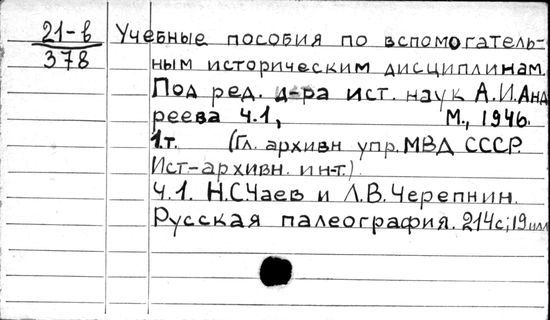 21-в Учебные пособия по вспомогатель-
378 ным историческим дисциплинам.
Под ред. д-ра ист. наук А.И.Анд
реева ч.1, М., 1946.
1.т. (Гл. архивн упр. МВД СССР.
Ист-архивн. ин-т.)
ч.1. Н.С.Чаев и Л.В.Черепнин.
Русская палеография. 214с; 19илл